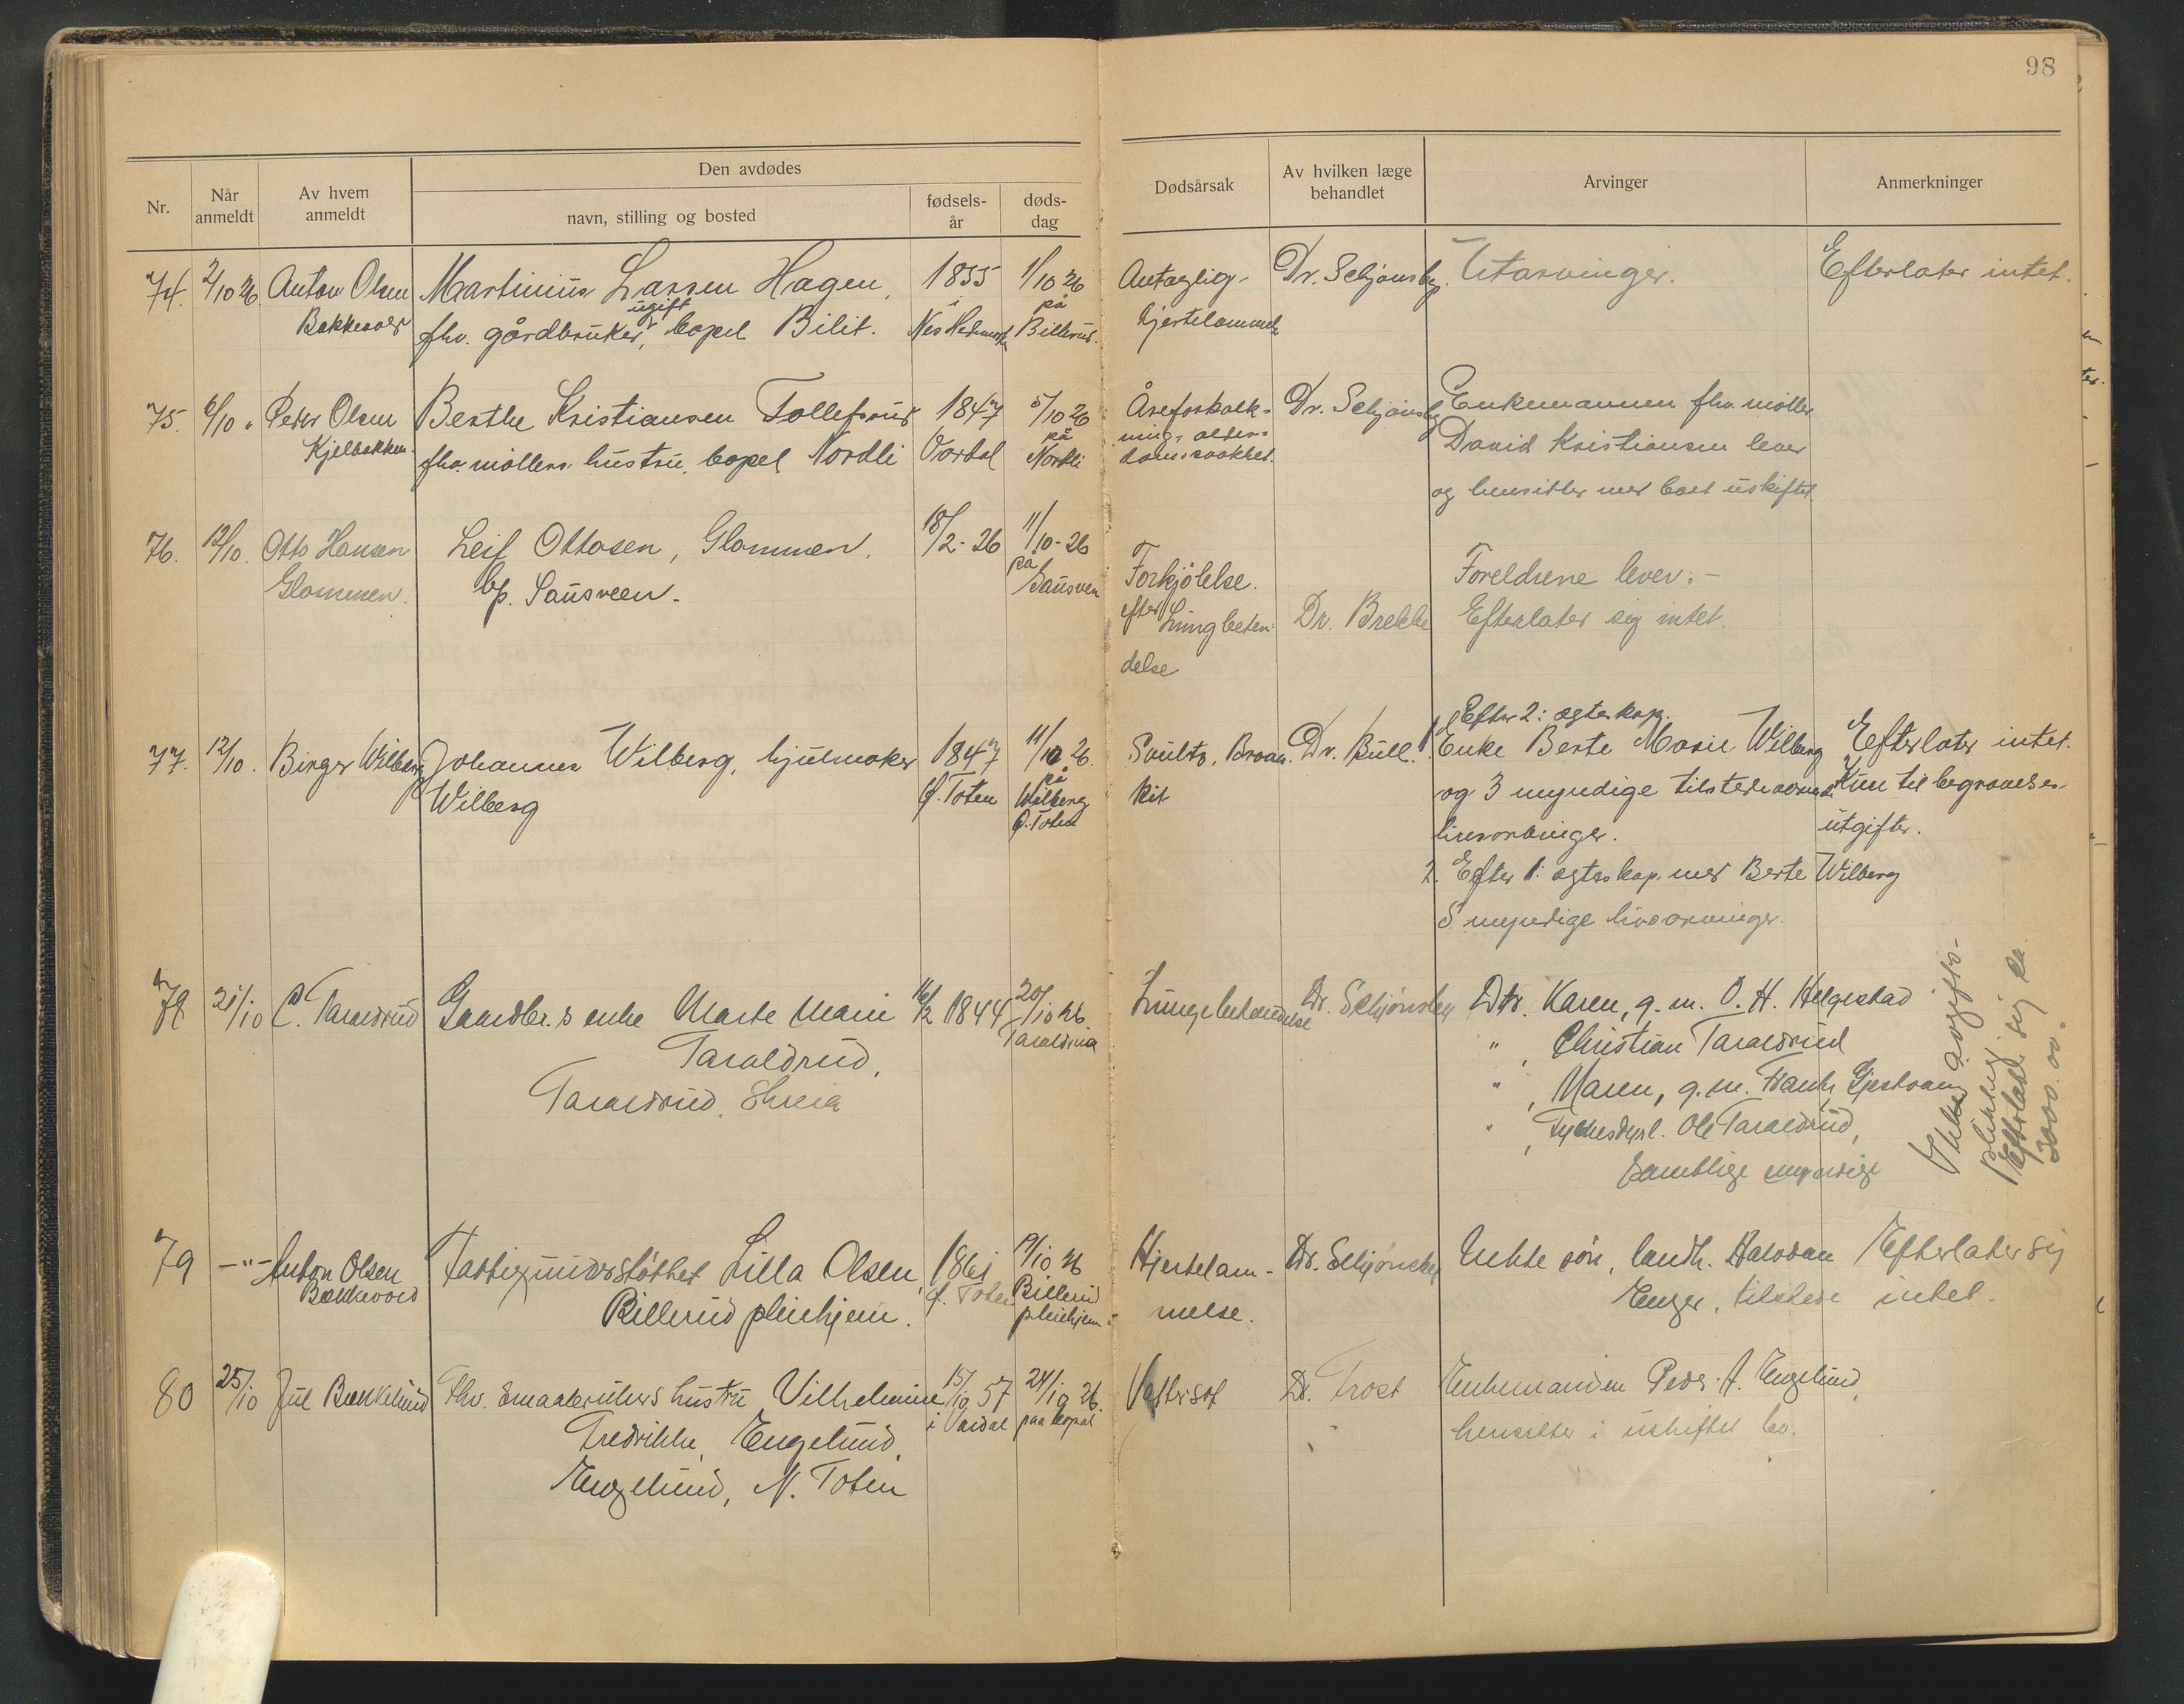 98
Den avdødes
Nr.
Når anmeldt
Av hvem anmeldt
navn, stilling og bosted
fødsels-år
døds-dag
Dødsårsak
Av hvilken læge behandlet
Arvinger
Anmerkninger
74. 2/10 26 Anton Olsen Martinius Larsen Hagen, 1855 1/10 26 Antagelig Dr. Schjønsby. Utarvinger. Efterlater intet.
ugift i på
Bækkevold fhv. gårdbruker, bopel Bilit. Nes Hedmarken Billerud. hjertelammelse
75. 6/10 " Peder Olsen Berthe Kristiansen Tollefsrud 1847 5/10 26 Åreforkalk- Dr. Schjønsby Enkemannen fhv. møller
Kjelbakken fhv. møllers hustru, bopel Nordli Vardal på Nordli ning, alder- David Kristiansen lever
domssvakhet. og hensitter med boet uskiftet
76. 12/10. Otto Hansen Leif Ottosen, Glommen. 18/2-26 11/10-26
Glommen. bp. Sausveen. på Sausveen Forkjølelse. Foreldrene lever.-
efter Lungbeten- Dr. Brekke Efterlater sig intet.
delse
1. Efter 2: egteskap.
77. 12/10. Birger Wilberg Johannes Wilberg, hjulmaker 1847 11/10 26. Svulst, Bronkit Dr. Bull. Enke Berte Marie Wilberg Efterlater intet.
Wilberg Ø. Toten på Wilberg Ø. Toten og 3 myndige tilstedeværende Kun til begravelses-
livsarvinger. utgifter.
2. Efter 1: egteskap med Berte Wilberg
5 myndige livsarvinger.
78 21/10 C. Taraldrud Gaardbr.s enke Marte Marie 16/2 1844 20/10 26. Lungebetendelse Dr. Schjønsby Dtr. Karen, g. m. O. H. Helgestad
Taraldrud, Taraldrud " Christian Taraldrud
Taraldrud, Skreia " , Maren, g. m. Gjestvang
" , Ole Taraldrud,
Samtlige myndige
Ikke avgifts-
pliktig
Efterlater sig ca.
3000.00.
79 -"- Anton Olsen Fattigunderstøttet Lilla Olsen, 1861 19/10 26 Hjertelam- Dr. Schjønsby Enkte søn, landh. Halvdan Efterlater sig
Bækkevold Billerud pleiehjem. Ø. Toten Billerud pleiehjem. melse. Enger, tilstede intet.
80 25/10 Jul Bækkelund Fhv. smaabrukers hustru Vilhelmine 15/10 57 24/10 26. Vattersot Dr. Trost Enkemanden Peder A. Engelund,
Fredrikke Engelund, i Vardal paa bopæl hensitter i uskiftet bo.
Engelund, N. Toten